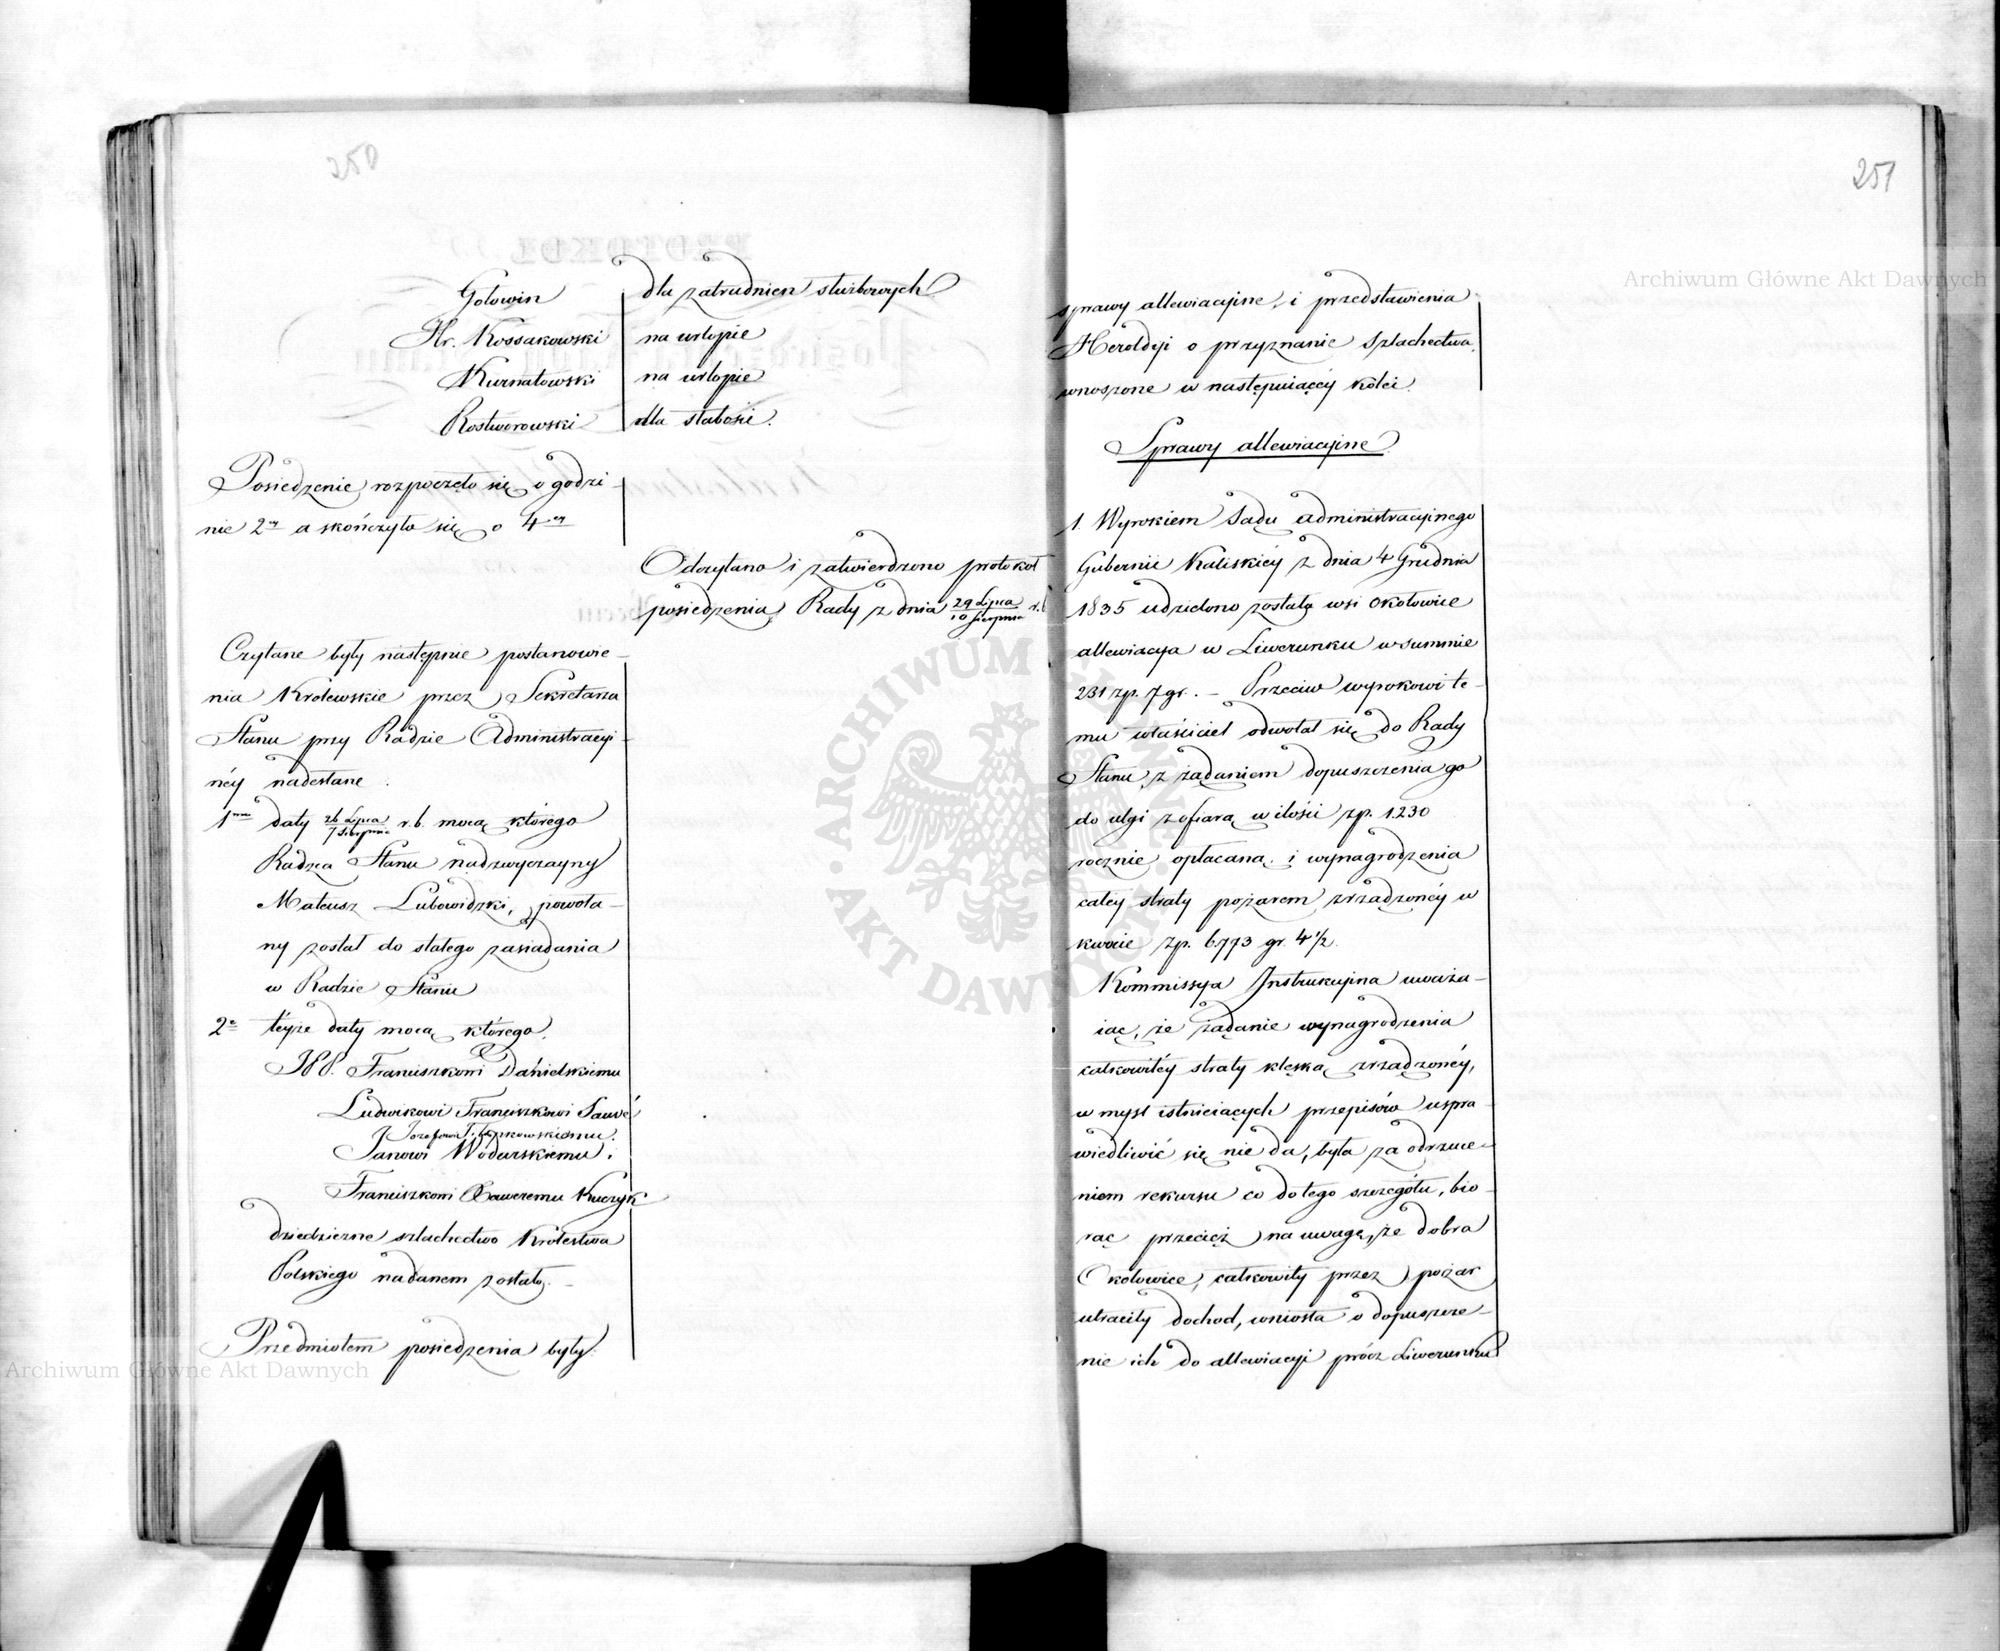 250
Gołowin dla zatrudnien służbowych
Hr. Kossakowski na urlopie
Kurnatowski na urlopie
Rostworowski dla słabości.
Posiedzenie rozpoczęło się o godzi-
nie 2ey a skończyło się o 4ey
Odczytano i zatwierdzono protokoł
posiedzenia Rady z dnia 29 Lipca / 10 Sierpnia r.b
Czytane były następnie postanowie-
nia Królewskie przez Sekretarza
Stanu przy Radzie Administracyi-
néy nadesłane.
1mo daty 26 Lipca / 7 Sierpnia r.b. mocą którego
Radzca Stanu nadzwyczayny
Mateusz Lubowidzki, powoła-
ny został do stałego zasiadania
w Radzie Stanu
2e téyże daty mocą którego.
Franciszkowi Dańielskiemu
Ludwikowi Franciszkowi Sauvé
Józefowi
Janowi Wodarskiemu i
Franciszkowi Xaweremu Kuczyk
dziedziczne szlachectwo Królestwa
Polskiego nadanem zostało. -
Przedmiotem posiedzenia były:
251
sprawy allewiacyjne, i przedstawienia
Heroldyi o przyznanie Szlachectwa,
wnoszone w następuiącéy kolei.
Sprawy allewiacyjne
1. Wyrokiem Sądu administracyjnego
Gubernii Kaliskiéy z dnia 4 Grudnia
1835 udzieloną została wsi Okołowice
allewiacya w Liwerunku w summie
231 zp. 7 gr. - Przeciw wyrokowi te-
mu właściciel odwołał się do Rady
Stanu z żądaniem dopuszczenia go
do ulgi z ofiarą w ilości zp. 1.230
rocznie opłacaną i wynagrodzenia
całéy straty pożarem zrządzonéy w
kwocie zp. 6.773 gr. 4½.
Kommissya Instrukcyjna uważa-
iąc, że żądanie wynagrodzenia
całkowitéy straty klęską zrządzonéy,
w myśl istnieiących przepisów uspra-
wiedliwić się nie da, była za odrzuce-
niem rekursu co do tego szczegółu, bio-
rąc przecięż na uwagę, że dobra
Okołowice, całkowity przez pożar
utraciły dochod, wniosła o dopuszcze-
nie ich do allewiacyi prócz Liwerunku
Archiwum Główne Akt Dawnych
Archiwum Główne Akt Dawnych